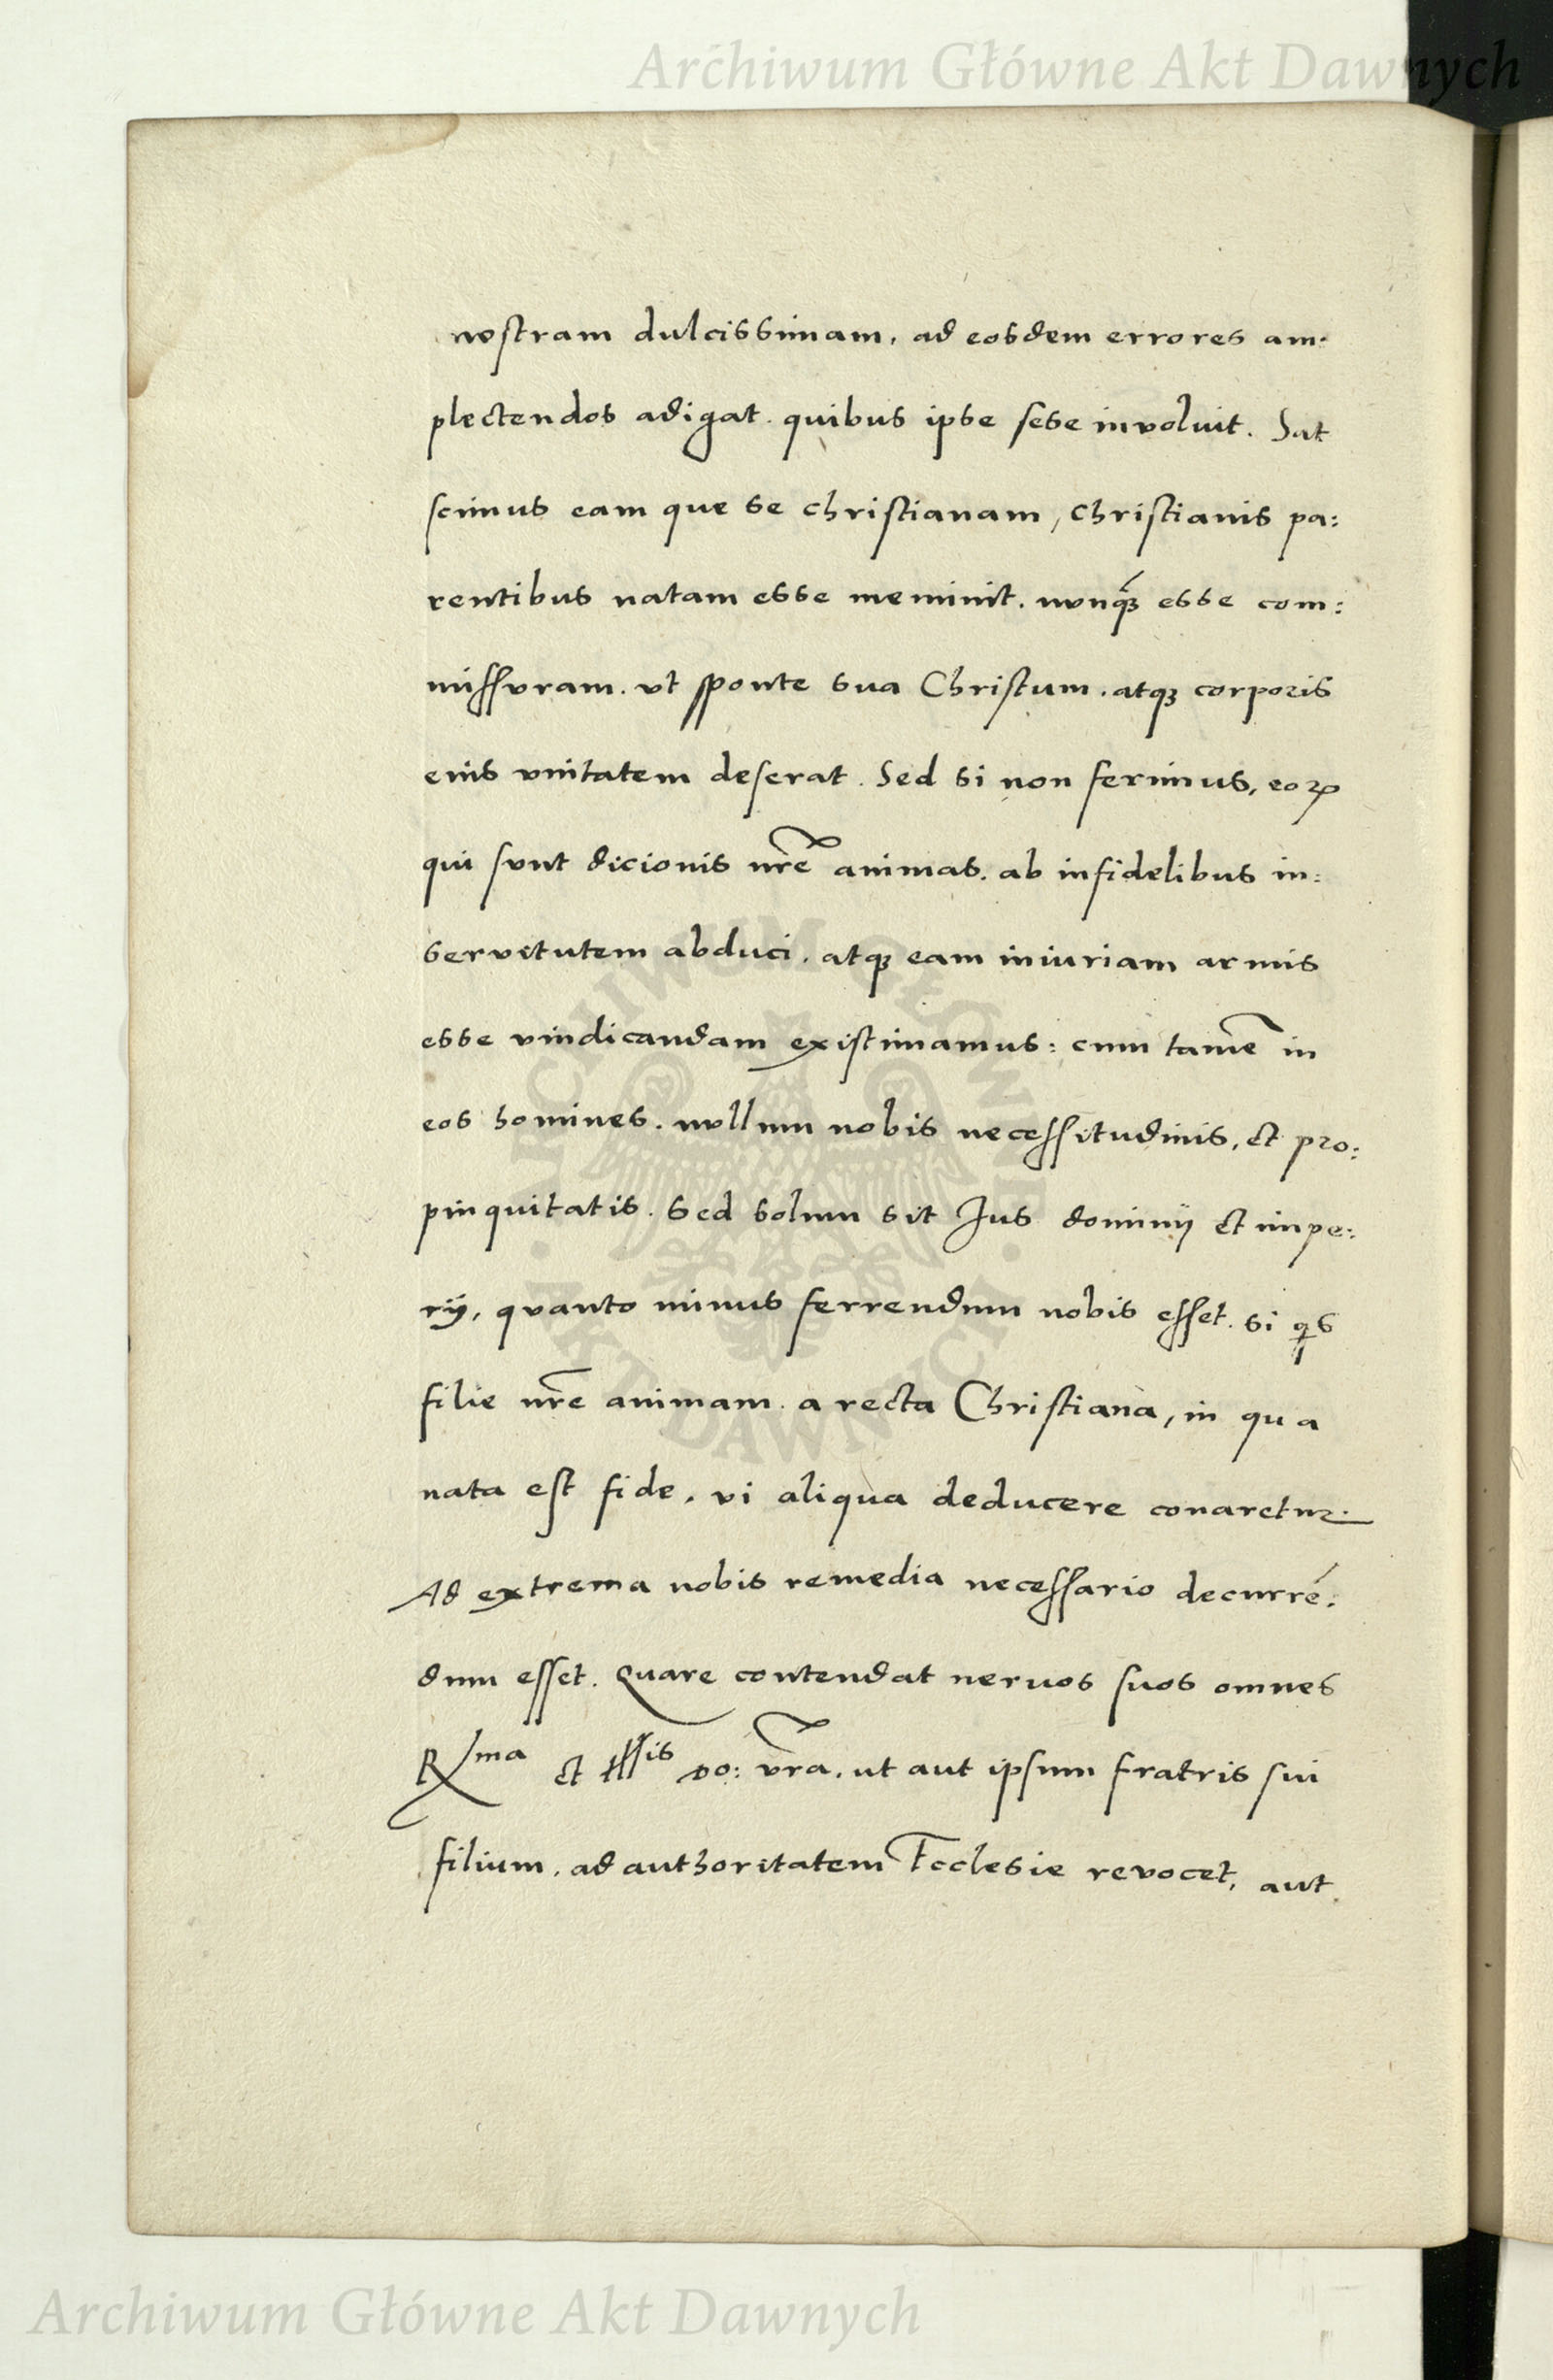 Archiwum Główne Akt Dawnych
nostram dulcissimam, ad eosdem errores am:
plectendos adigat. quibus ipse sese involuit. Sat
scimus eam que se christianam, christianis pa:
rentibus natam esse meminit. nunq̃ꝫ esse com:
missuram. vt sponte sua Christum. atqꝫ corporis
eius vnitatem deserat. Sed si non ferimus, eoꝝ
qui sunt dicionis nr̃e animas. ab infidelibus in:
servitutem abduci. atqꝫ eam iniuriam armis
esse vindicandam existimamus: cum tamẽ in
eos homines. nullum nobis necessitudinis, et pro:
pinquitatis. Sed solum sit Jus dominij et impe:
rij, quanto minus ferrendum nobis esset. si qs
filie nr̃e animam. a recta Christiana, in qua
nata est fide. vi aliqua deducere conaretur.
Ad extrema nobis remedia necessario decurrẽ:
dum esset. Quare contendat neruos suos omnes
Rma et Illis do: vr̃a. ut aut ipsum fratris sui
filium. ad authoritatem Ecclesie revocet, aut
ARCHIWUM GŁÓWNE
AKT DAWNYCH
Archiwum Główne Akt Dawnych